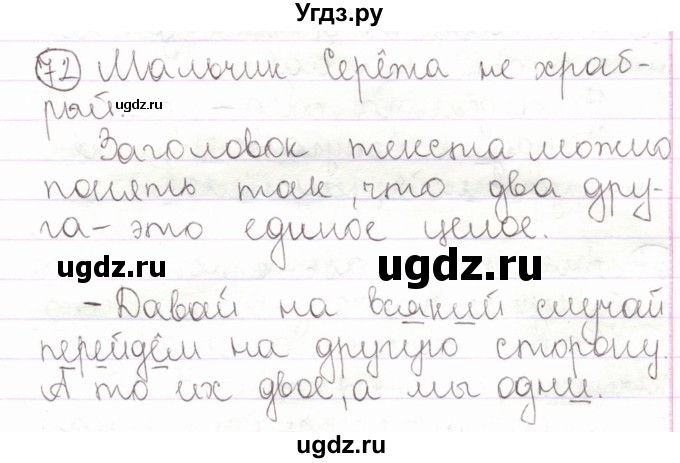 Угдз.ру
72 Мальчик Серёжа не храб-
рый.
ugdz.ru
Заголовок текста можно
понять так, что два дру-
га - это единое целое.
ugdz.ru
ugdz.ru
- Давай на всякий случай
перейдём на другую сторону.
А то их двое, а мы одни.
ugdz.ru